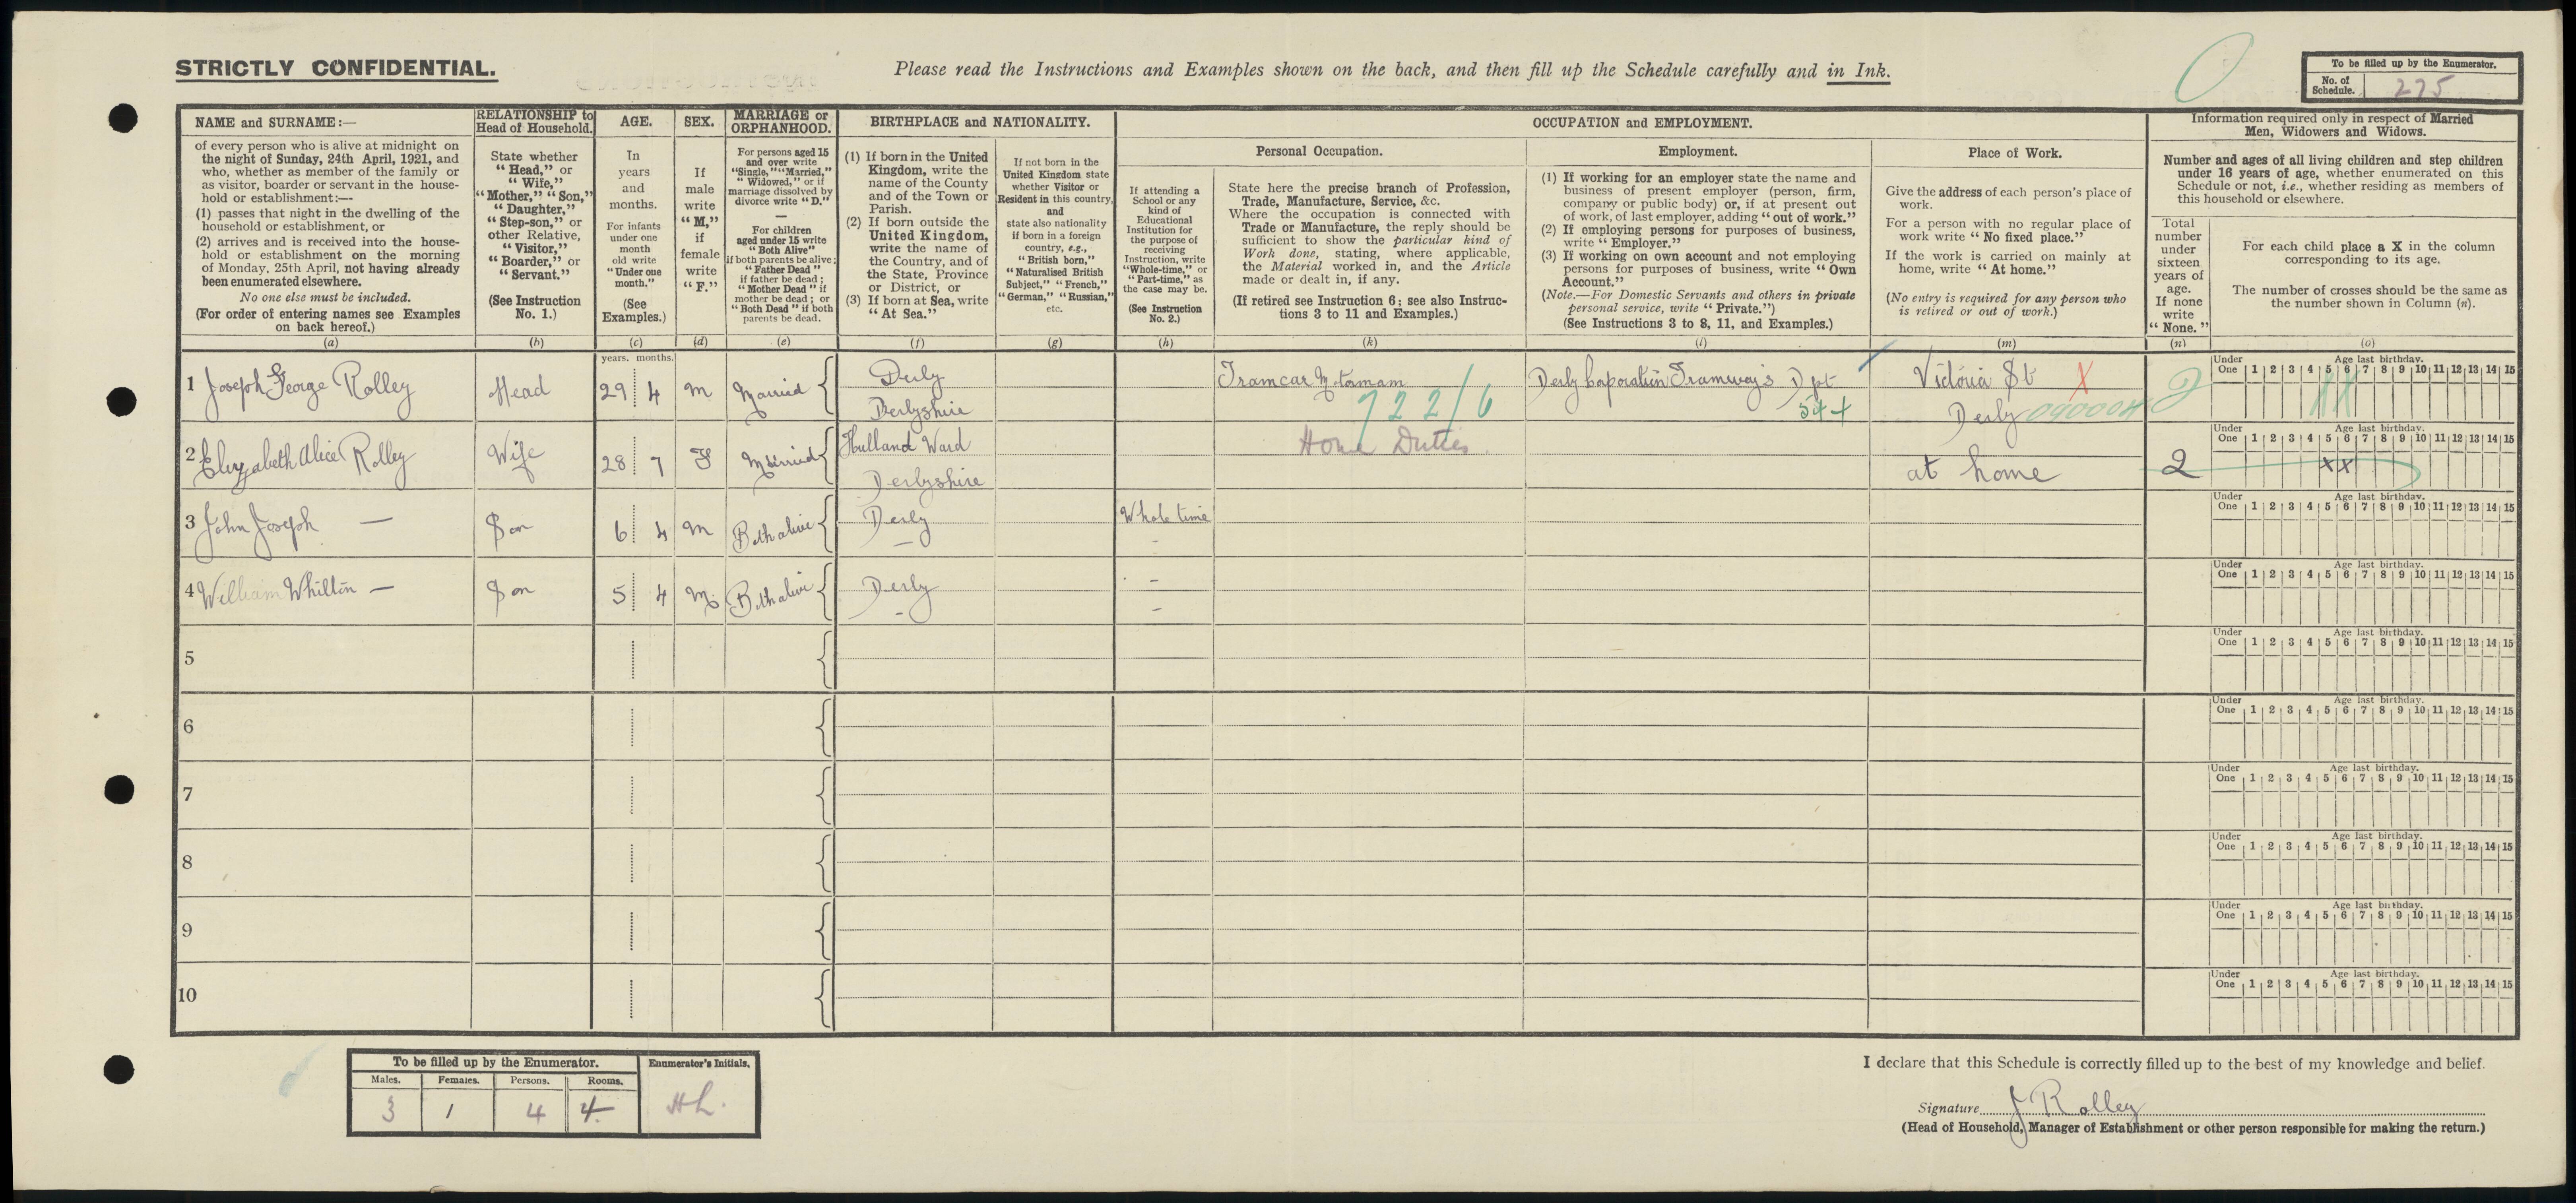 STRICTLY CONFIDENTIAL.
Please read the Instructions and Examples shown on the back, and then fill up the Schedule carefully and in Ink.
To be filled up by the Enumerator.
No. of Schedule. 275
NAME and SURNAME:—
of every person who is alive at midnight on
the night of Sunday, 24th April, 1921, and
who, whether as member of the family or
as visitor, boarder or servant in the house-
hold or establishment:—
(1) passes that night in the dwelling of the
household or establishment, or
(2) arrives and is received into the house-
hold or establishment on the morning
of Monday, 25th April, not having already
been enumerated elsewhere.
No one else must be included.
(For order of entering names see Examples
on back hereof.)
(a)
RELATIONSHIP to
Head of Household.
State whether
"Head," or
"Wife,"
"Mother," "Son,"
"Daughter,"
"Step-son," or
other Relative,
"Visitor,"
"Boarder," or
"Servant."
(See Instruction
No. 1.)
(b)
AGE.
In
years
and
months.
For infants
under one
month
old write
"Under one
month."
(See
Examples.)
(c)
SEX.
If
male
write
"M,"
if
female
write
"F."
(d)
MARRIAGE or
ORPHANHOOD.
For persons aged 15
and over write
"Single," "Married,"
"Widowed," or if
marriage dissolved by
divorce write "D."
—
For children
aged under 15 write
"Both Alive"
if both parents be alive;
"Father Dead"
if father be dead;
"Mother Dead" if
mother be dead; or
"Both Dead" if both
parents be dead.
(e)
BIRTHPLACE and NATIONALITY.
(1) If born in the United
Kingdom, write the
name of the County
and of the Town or
Parish.
(2) If born outside the
United Kingdom,
write the name of
the Country, and of
the State, Province
or District, or
(3) If born at Sea, write
"At Sea."
(f)
If not born in the
United Kingdom state
whether Visitor or
Resident in this country,
and
state also nationality
if born in a foreign
country, e.g.,
"British born,"
"Naturalised British
Subject," "French,"
"German," "Russian,"
etc.
(g)
OCCUPATION and EMPLOYMENT.
Personal Occupation.
If attending a
School or any
kind of
Educational
Institution for
the purpose of
receiving
Instruction, write
"Whole-time," or
"Part-time," as
the case may be.
(See Instruction
No. 2.)
(h)
State here the precise branch of Profession,
Trade, Manufacture, Service, &c.
Where the occupation is connected with
Trade or Manufacture, the reply should be
sufficient to show the particular kind of
Work done, stating, where applicable,
the Material worked in, and the Article
made or dealt in, if any.
(If retired see Instruction 6; see also Instruc-
tions 3 to 11 and Examples.)
(k)
Employment.
(1) If working for an employer state the name and
business of present employer (person, firm,
company or public body) or, if at present out
of work, of last employer, adding "out of work."
(2) If employing persons for purposes of business,
write "Employer."
(3) If working on own account and not employing
persons for purposes of business, write "Own
Account."
(Note.—For Domestic Servants and others in private
personal service, write "Private.")
(See Instructions 3 to 8, 11, and Examples.)
(l)
Place of Work.
Give the address of each person's place of
work.
For a person with no regular place of
work write "No fixed place."
If the work is carried on mainly at
home, write "At home."
(No entry is required for any person who
is retired or out of work.)
(m)
Information required only in respect of Married
Men, Widowers and Widows.
Number and ages of all living children and step children
under 16 years of age, whether enumerated on this
Schedule or not, i.e., whether residing as members of
this household or elsewhere.
Total
number
under
sixteen
years of
age.
If none
write
"None."
(n)
For each child place a X in the column
corresponding to its age.
The number of crosses should be the same as
the number shown in Column (n).
(o)
years. months.
1 Joseph George Rolley Head 29 4 M Married Derby Tramcar Motorman Derby Coporation Tramway's Dpt Victoria St X 2
Derbyshire 722/6 544 Derby 090004
Under One Age last birthday. 1 2 3 4 5 6 7 8 9 10 11 12 13 14 15
XX
2 Elizabeth Alice Rolley Wife 28 7 F Married Hulland Ward Home Duties
Derbyshire at home 2
Under One Age last birthday. 1 2 3 4 5 6 7 8 9 10 11 12 13 14 15
XX
3 John Joseph — Son 6 4 M Both alive Derby Whole time
Under One Age last birthday. 1 2 3 4 5 6 7 8 9 10 11 12 13 14 15
4 William Whilton — Son 5 4 M Both alive Derby –
Under One Age last birthday. 1 2 3 4 5 6 7 8 9 10 11 12 13 14 15
5
Under One Age last birthday. 1 2 3 4 5 6 7 8 9 10 11 12 13 14 15
6
Under One Age last birthday. 1 2 3 4 5 6 7 8 9 10 11 12 13 14 15
7
Under One Age last birthday. 1 2 3 4 5 6 7 8 9 10 11 12 13 14 15
8
Under One Age last birthday. 1 2 3 4 5 6 7 8 9 10 11 12 13 14 15
9
Under One Age last birthday. 1 2 3 4 5 6 7 8 9 10 11 12 13 14 15
10
Under One Age last birthday. 1 2 3 4 5 6 7 8 9 10 11 12 13 14 15
To be filled up by the Enumerator.
Males. Females. Persons. Rooms.
3 1 4 4
Enumerator's Initials.
HL.
I declare that this Schedule is correctly filled up to the best of my knowledge and belief.
Signature J Rolley
(Head of Household, Manager of Establishment or other person responsible for making the return.)